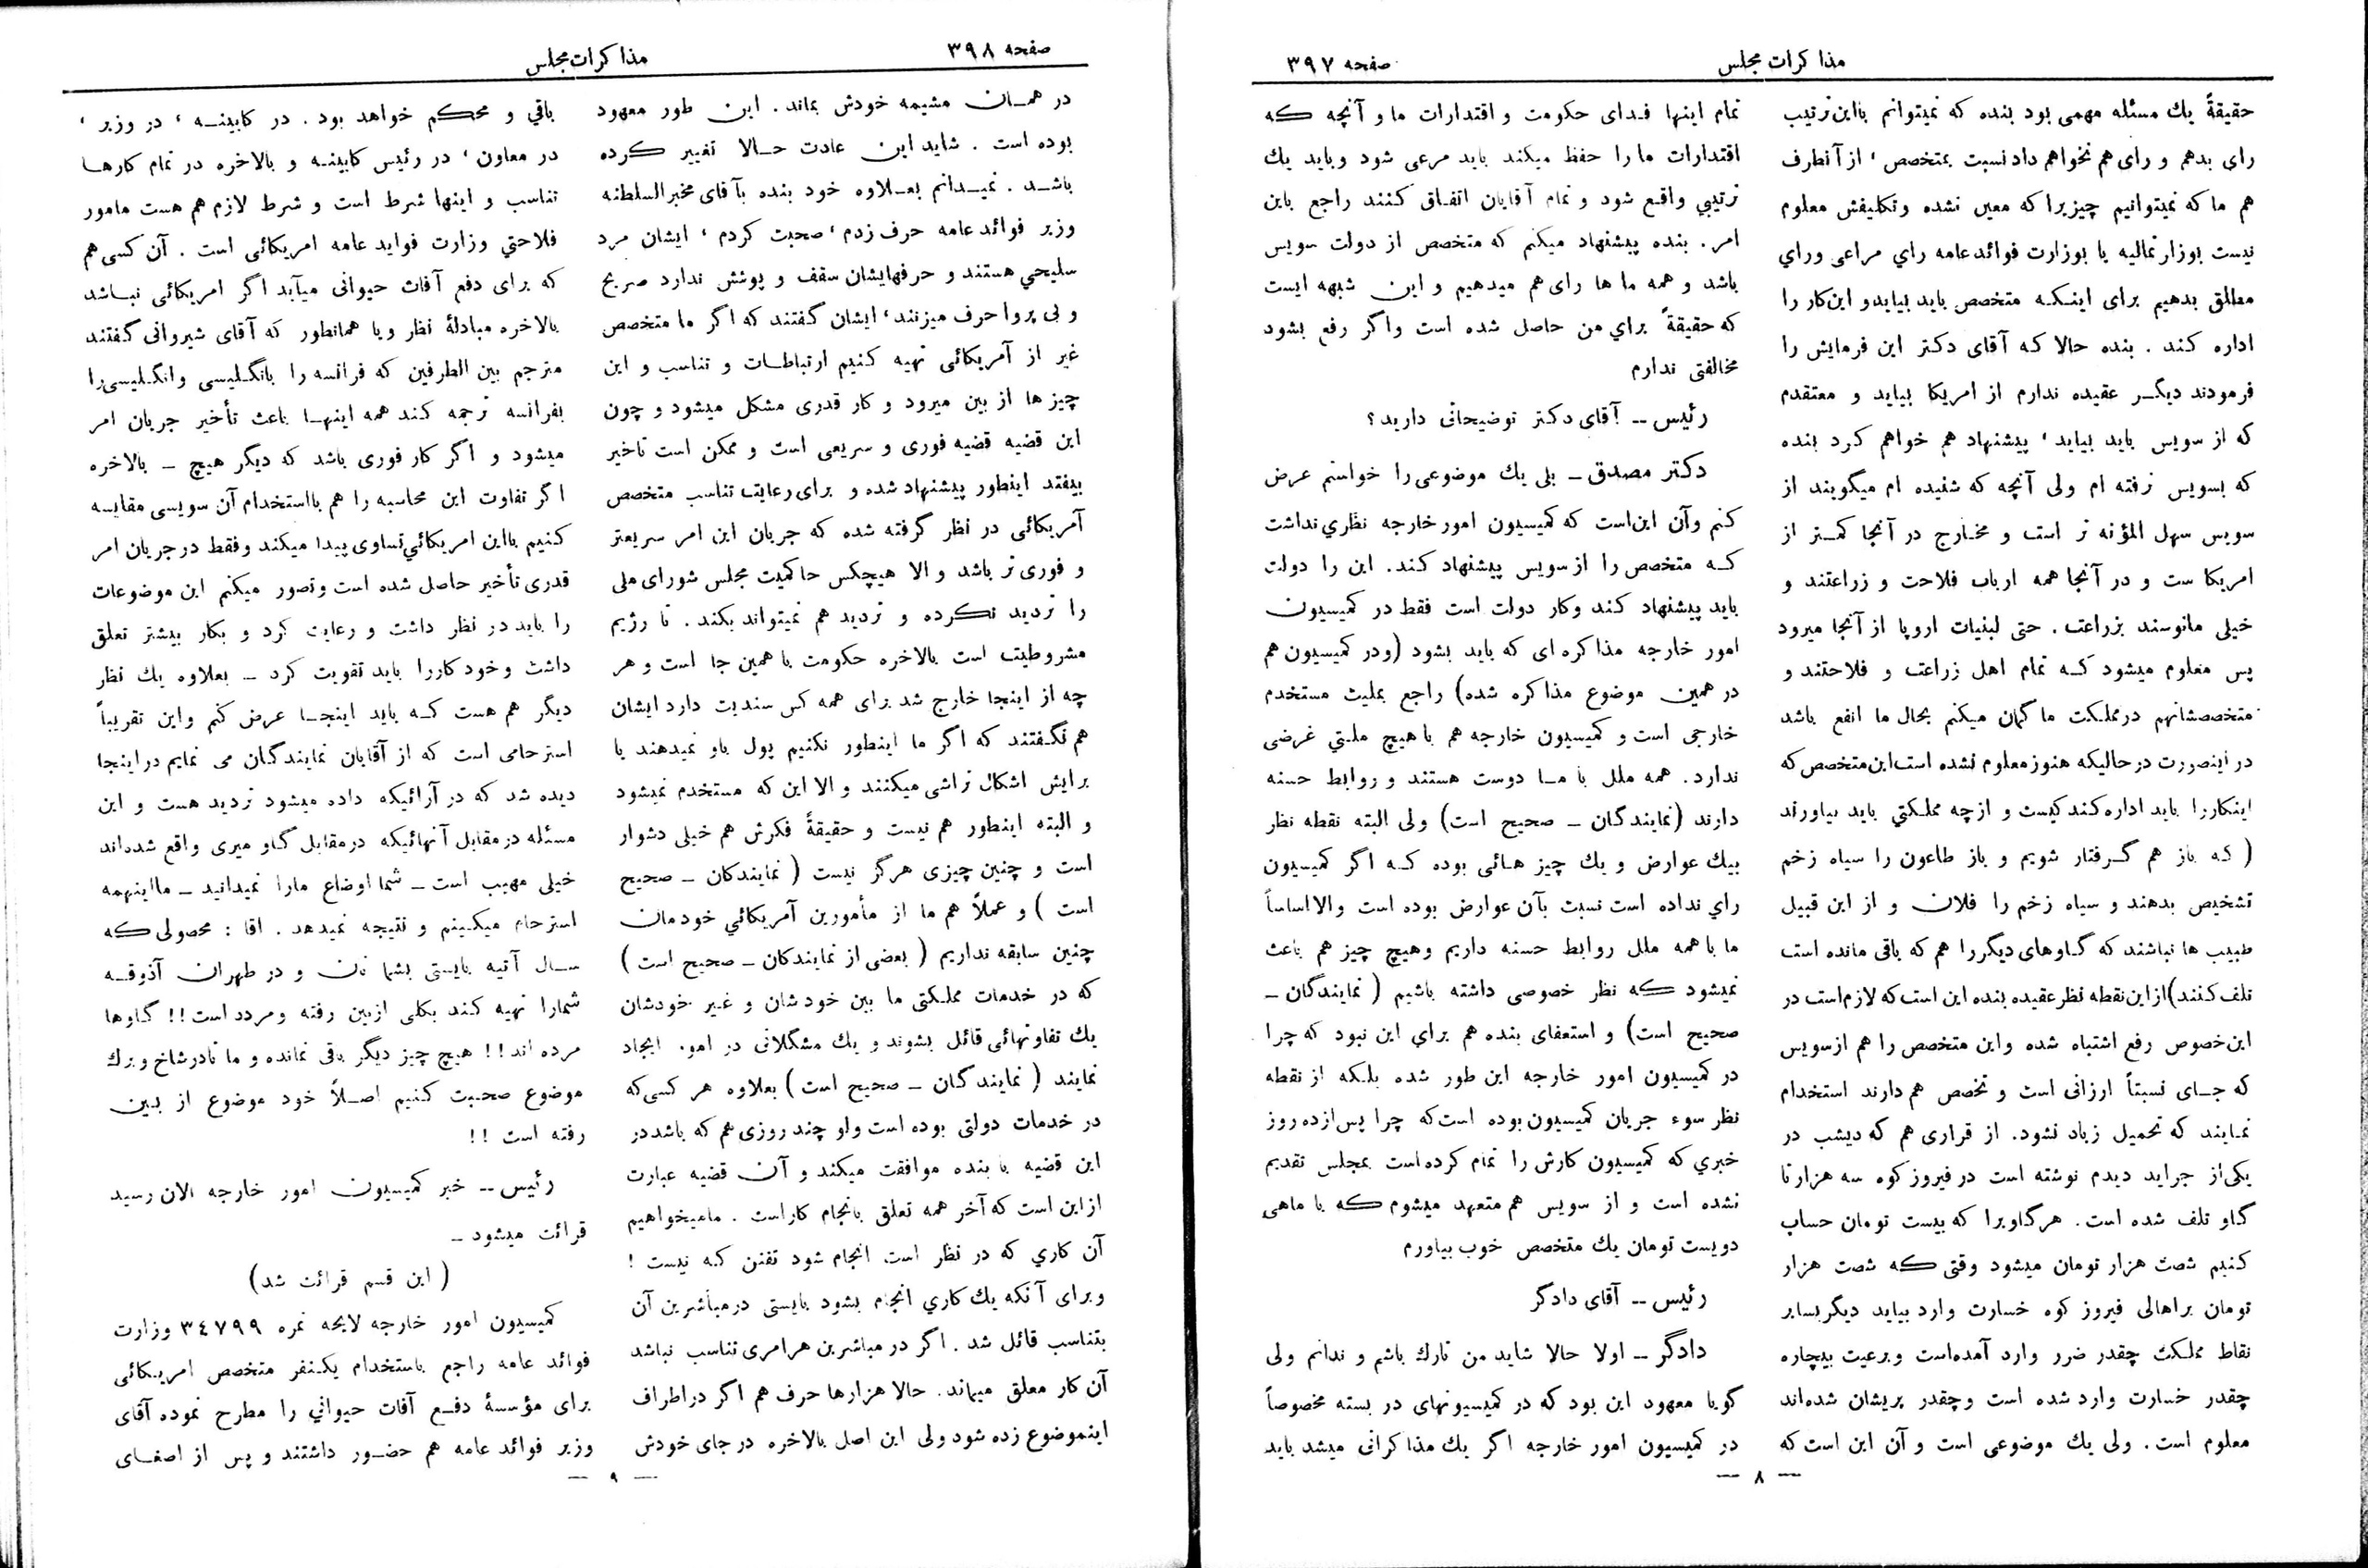 مذاکرات مجلس
صفحه ۳۹۷
حقیقةً یك مسئله مهمی بود بنده که نمیتوانم بااین ترتیب
رای بدهم و رای هم نخواهم داد نسبت بمتخصص ، از آنطرف
هم ما که نمیتوانیم چیزیرا که معین نشده وتکلیفش معلوم
نیست بوزارتمالیه یا بوزارت فوائدعامه رای مراعی ورای
مطلق بدهیم برای اینکه متخصص باید بیاید و این کار را
اداره کند . بنده حالا که آقای دکتر این فرمایش را
فرمودند دیگر عقیده ندارم از امریکا بیاید و معتقدم
که از سویس باید بیاید ، پیشنهاد هم خواهم کرد بنده
که بسویس نرفته ام ولی آنچه که شنیده ام میگویند از
سویس سهل المؤنه تر است و مخارج در آنجا کمتر از
امریکا ست و در آنجا همه ارباب فلاحت و زراعتند و
خیلی مانوسند بزراعت . حتی لبنیات اروپا از آنجا میرود
پس معلوم میشود که تمام اهل زراعت و فلاحتند و
متخصصشانهم درمملکت ما گمان میکنم بحال ما انفع باشد
در اینصورت درحالیکه هنوز معلوم نشده است این متخصص که
اینکاررا باید اداره کند کیست و ازچه مملکتي باید بیاورند
( که باز هم گرفتار شویم و باز طاعون را سیاه زخم
تشخیص بدهند و سیاه زخم را فلان و از این قبیل
طبیب ها نباشند که گاوهای دیگررا هم که باقی مانده است
تلف کنند) از این نقطه نظر عقیده بنده این است که لازم است در
این خصوص رفع اشتباه شده واین متخصص را هم ازسویس
که جای نسبتاً ارزانی است و تخصص هم دارند استخدام
نمایند که تحمیل زیاد نشود. از قراری هم که دیشب در
یکی از جراید دیدم نوشته است در فیروز کوه سه هزار تا
گاو تلف شده است. هرگاویرا که بیست تومان حساب
کنیم شصت هزار تومان میشود وقتی که شصت هزار
تومان براهالی فیروز کوه خسارت وارد بیاید دیگر بسایر
نقاط مملکت چقدر ضرر وارد آمده‌است وبرعیت بیچاره
چقدر خسارت وارد شده است وچقدر پریشان شده‌اند
معلوم است . ولی یك موضوعی است و آن این است که
تمام اینها فدای حکومت و اقتدارات ما و آنچه که
اقتدارات ما را حفظ میکند باید مرعی شود وباید یك
ترتیبي واقع شود و تمام آقایان اتفاق کنند راجع باین
امر . بنده پیشنهاد میکنم که متخصص از دولت سویس
باشد و همه ما ها رای هم میدهیم و این شبهه ایست
که حقیقةً برای من حاصل شده است واگر رفع بشود
مخالفتی ندارم
رئیس -- آقای دکتر توضیحاتی دارید ؟
دکتر مصدق - بلی یك موضوعی را خواستم عرض
کنم وآن این‌است که کمیسیون امور خارجه نظری نداشت
که متخصص را از سویس پیشنهاد کند . این را دولت
باید پیشنهاد کند وکار دولت است فقط در کمیسیون
امور خارجه مذاکره ای که باید بشود (ودر کمیسیون هم
در همین موضوع مذاکره شده) راجع بملیت مستخدم
خارجی است و کمیسیون خارجه هم با هیچ ملتي غرضی
ندارد . همه ملل با ما دوست هستند و روابط حسنه
دارند (نمایندگان - صحیح است) ولی البته نقطه نظر
بیك عوارض و یك چیز هائی بوده که اگر کمیسیون
رای نداده است نسبت بآن عوارض بوده است والا اساساً
ما با همه ملل روابط حسنه داریم وهیچ چیز هم باعث
نمیشود که نظر خصوصی داشته باشیم ( نمایندگان -
صحیح است) و استعفای بنده هم برای این نبود که چرا
در کمیسیون امور خارجه این طور شده بلکه از نقطه
نظر سوء جریان کمیسیون بوده است که چرا پس ازده روز
خبری که کمیسیون کارش را تمام کرده است بمجلس تقدیم
نشده است و از سویس هم متعهد میشوم که با ماهی
دویست تومان یك متخصص خوب بیاورم
رئیس -- آقای دادگر
دادگر - اولا حالا شاید من تارك باشم و ندانم ولی
گویا معهود این بود که در کمیسیونهای در بسته مخصوصاً
در کمیسیون امور خارجه اگر یك مذاکراتی میشد باید
— ۸ —
صفحه ۳۹۸
مذاکرات مجلس
در همان مشیمه خودش بماند . این طور معهود
بوده است . شاید این عادت حالا تغییر کرده
باشد . نمیدانم بعلاوه خود بنده بآقای مخبرالسلطنه
وزیر فوائدعامه حرف زدم ، صحبت کردم ، ایشان مرد
سلیحي هستند و حرفهایشان سقف و پوشش ندارد صریح
و بی پروا حرف میزنند ، ایشان گفتند که اگر ما متخصص
غیر از آمریکائی تهیه کنیم ارتباطات و تناسب و این
چیز ها از بین میرود و کار قدری مشکل میشود و چون
این قضیه قضیه فوری و سریعی است و ممکن است تاخیر
بیفتد اینطور پیشنهاد شده و برای رعایت تناسب متخصص
آمریکائی در نظر گرفته شده که جریان این امر سریعتر
و فوری تر باشد و الا هیچکس حاکمیت مجلس شورای ملی
را تردید نکرده و تردید هم نمیتواند بکند . تا رژیم
مشروطیت است بالاخره حکومت با همین جا است و هر
چه از اینجا خارج شد برای همه کس سندیت دارد ایشان
هم نگفتند که اگر ما اینطور نکنیم پول باو نمیدهند یا
برایش اشکال تراشی میکنند و الا این که مستخدم نمیشود
و البته اینطور هم نیست و حقیقةً فکرش هم خیلی دشوار
است و چنین چیزی هرگز نیست ( نمایندکان - صحیح
است ) و عملاً هم ما از مأمورین آمریکائي خودمان
چنین سابقه نداریم ( بعضی از نمایندکان - صحیح است )
که در خدمات مملکتی ما بین خودشان و غیر خودشان
یك تفاوتهائی قائل بشوند و یك مشگلاتی در امور ایجاد
نمایند ( نمایندگان - صحیح است ) بعلاوه هر کسی که
در خدمات دولتی بوده است ولو چند روزی هم که باشد در
این قضیه با بنده موافقت میکند و آن قضیه عبارت
از این است که آخر همه تعلق بانجام کار است . مامیخواهیم
آن کاري که در نظر است انجام شود تفنن که نیست !
وبرای آنکه یك کاري انجام بشود بایستی درمباشرین آن
بتناسب قائل شد . اگر در مباشرین هرامری تناسب نباشد
آن کار معلق میماند . حالا هزارها حرف هم اگر دراطراف
اینموضوع زده شود ولی این اصل بالاخره در جای خودش
باقي و محکم خواهد بود . در کابینه ، در وزیر ،
در معاون ، در رئیس کابینه و بالاخره در تمام کارها
تناسب و اینها شرط است و شرط لازم هم هست مامور
فلاحتي وزارت فواید عامه امریکائی است . آن کسی هم
که برای دفع آفات حیوانی میآید اگر امریکائی نباشد
بالاخره مبادلهٔ نظر ویا همانطور که آقای شیروانی گفتند
مترجم بین الطرفین که فرانسه را بانگلیسی وانگلیسی‌را
بفرانسه ترجمه کند همه اینها باعث تأخیر جریان امر
میشود و اگر کار فوری باشد که دیگر هیچ - بالاخره
اگر تفاوت این محاسبه را هم بااستخدام آن سویسی مقایسه
کنیم بااین امریکائي تساوی پیدا میکند وفقط در جریان امر
قدری تأخیر حاصل شده است وتصور میکنم این موضوعات
را باید در نظر داشت و رعایت کرد و بکار بیشتر تعلق
داشت وخود کاررا باید تقویت کرد - بعلاوه یك نظر
دیگر هم هست که باید اینجا عرض کنم واین تقریباً
استرحامی است که از آقایان نمایندگان می نمایم دراینجا
دیده شد که در آرائیکه داده میشود تردید هست و این
مسئله درمقابل آنهائیکه درمقابل گاو میری واقع شده‌اند
خیلی مهیب است - شما اوضاع مارا نمیدانید - مااینهمه
استرحام میکنیم و نتیجه نمیدهد . اقا : محصولی که
سال آتیه بایستی بشما نان و در طهران آذوقه
شمارا تهیه کند بکلی ازبین رفته ومردد است !! گاوها
مرده اند !! هیچ چیز دیگر باقی نمانده و ما تادرشاخ وبرك
موضوع صحبت کنیم اصلاً خود موضوع از بین
رفته است !!
رئیس -- خبر کمیسیون امور خارجه الان رسید
قرائت میشود -
( این قسم قرائت شد )
کمیسیون امور خارجه لایحه نمره ۳٤۷۹۹ وزارت
فوائد عامه راجع باستخدام یکنفر متخصص امریکائی
برای مؤسسهٔ دفع آفات حیواني را مطرح نموده آقای
وزیر فوائد عامه هم حضور داشتند و پس از اصغای
— ۹ —